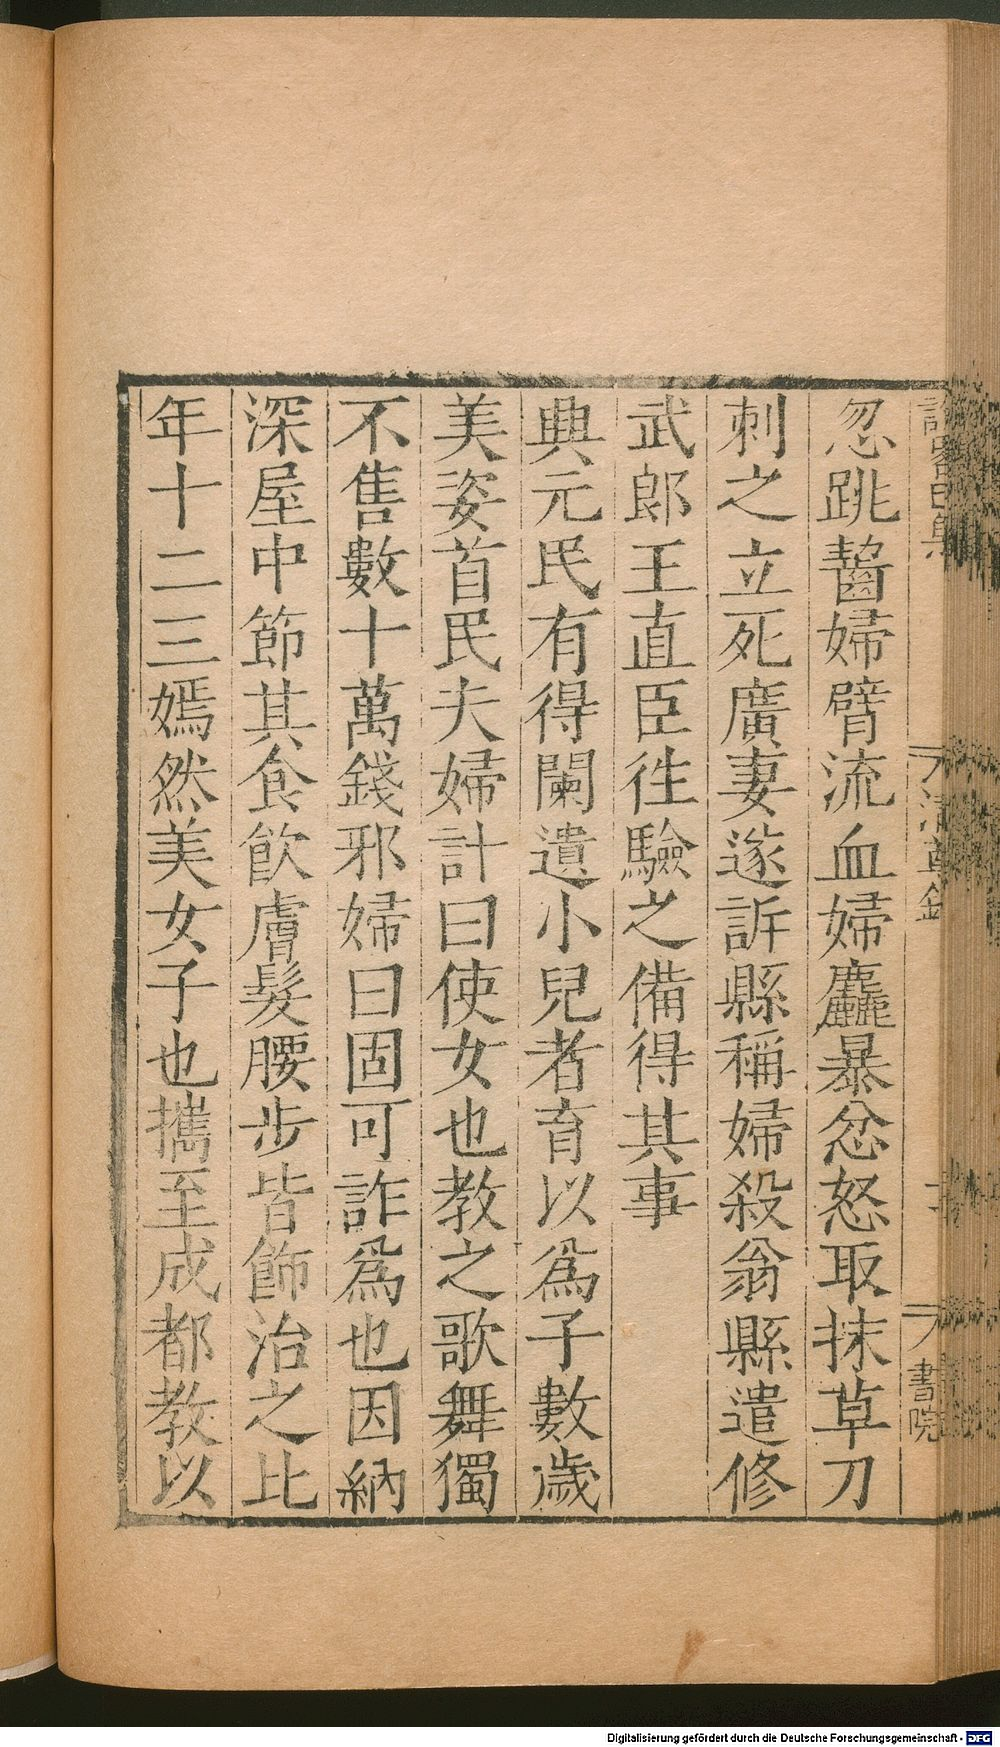 忽跳齧婦臂流血婦麤暴忿怒取抹草刀
刺之立死廣妻遂訴縣稱婦殺翁縣遣修
武郎王直臣徃驗之備得其事
典元民有得闌遺小兒者育以爲子數歲
美姿首民夫婦計曰使女也教之歌舞獨
不售數十萬錢邪婦曰固可詐爲也因納
深屋中節其食飲膚髮腰步皆飾治之比
年十二三嫣然美女子也攜至成都教以
書院
Digitalisierung gefördert durch die Deutsche Forschungsgemeinschaft - DFG